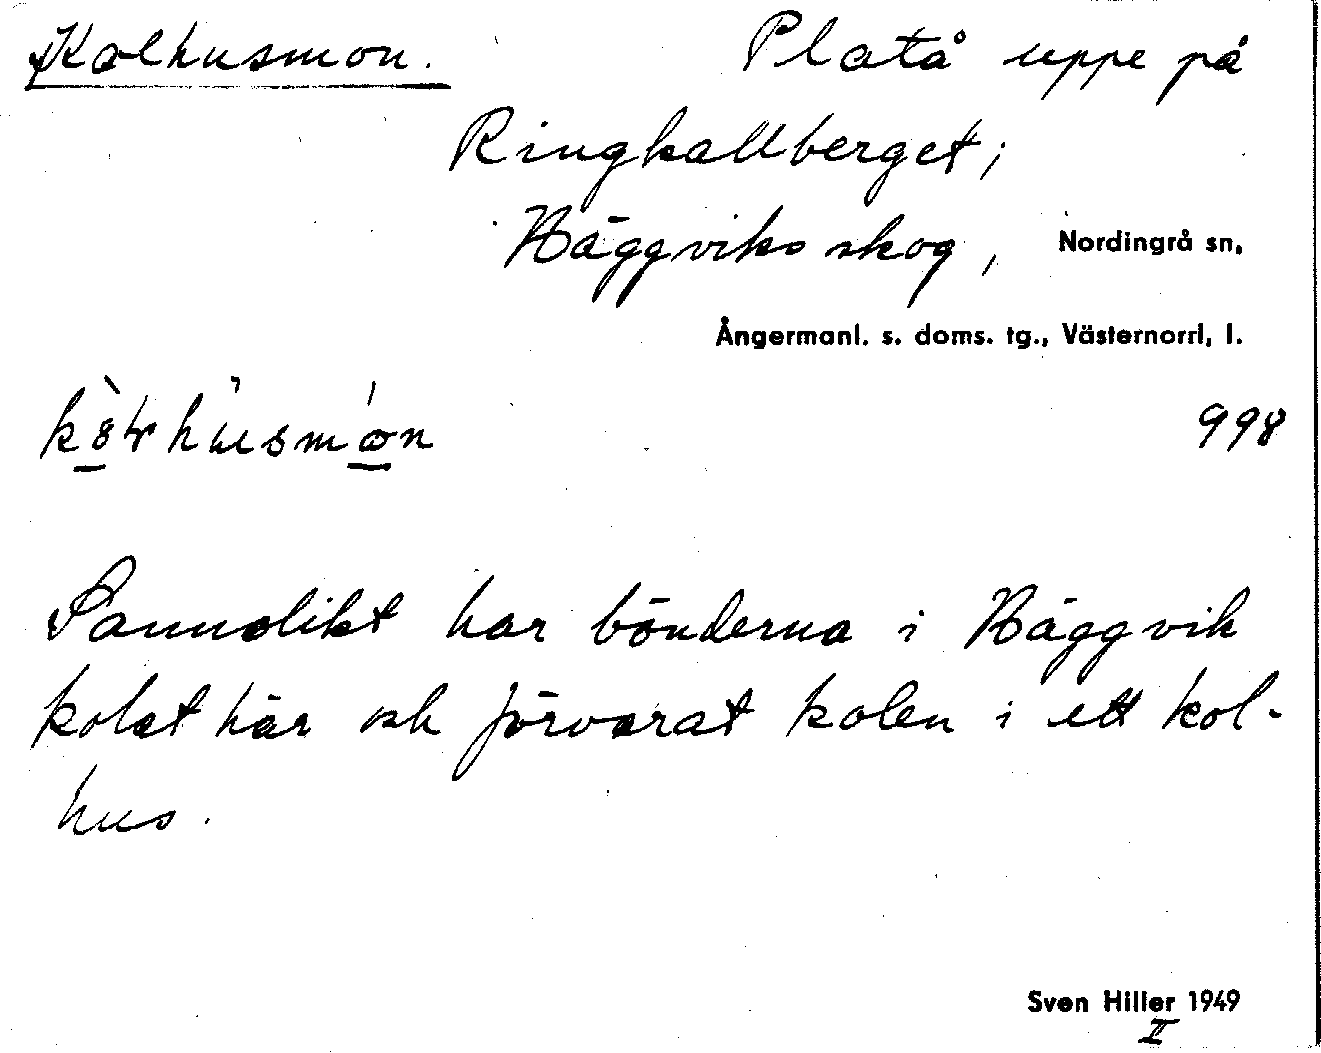 Kolhusmon. Platå uppe på
Ringkallberget;
Häggviks skog, Nordingrå sn,
Ångermanl. s. doms. tg., Västernorrl. l.
998
Sannolikt har bönderna i Häggvik
kolat här och förvarat kolen i ett kol-
hus.
Sven Hiller 1949
II